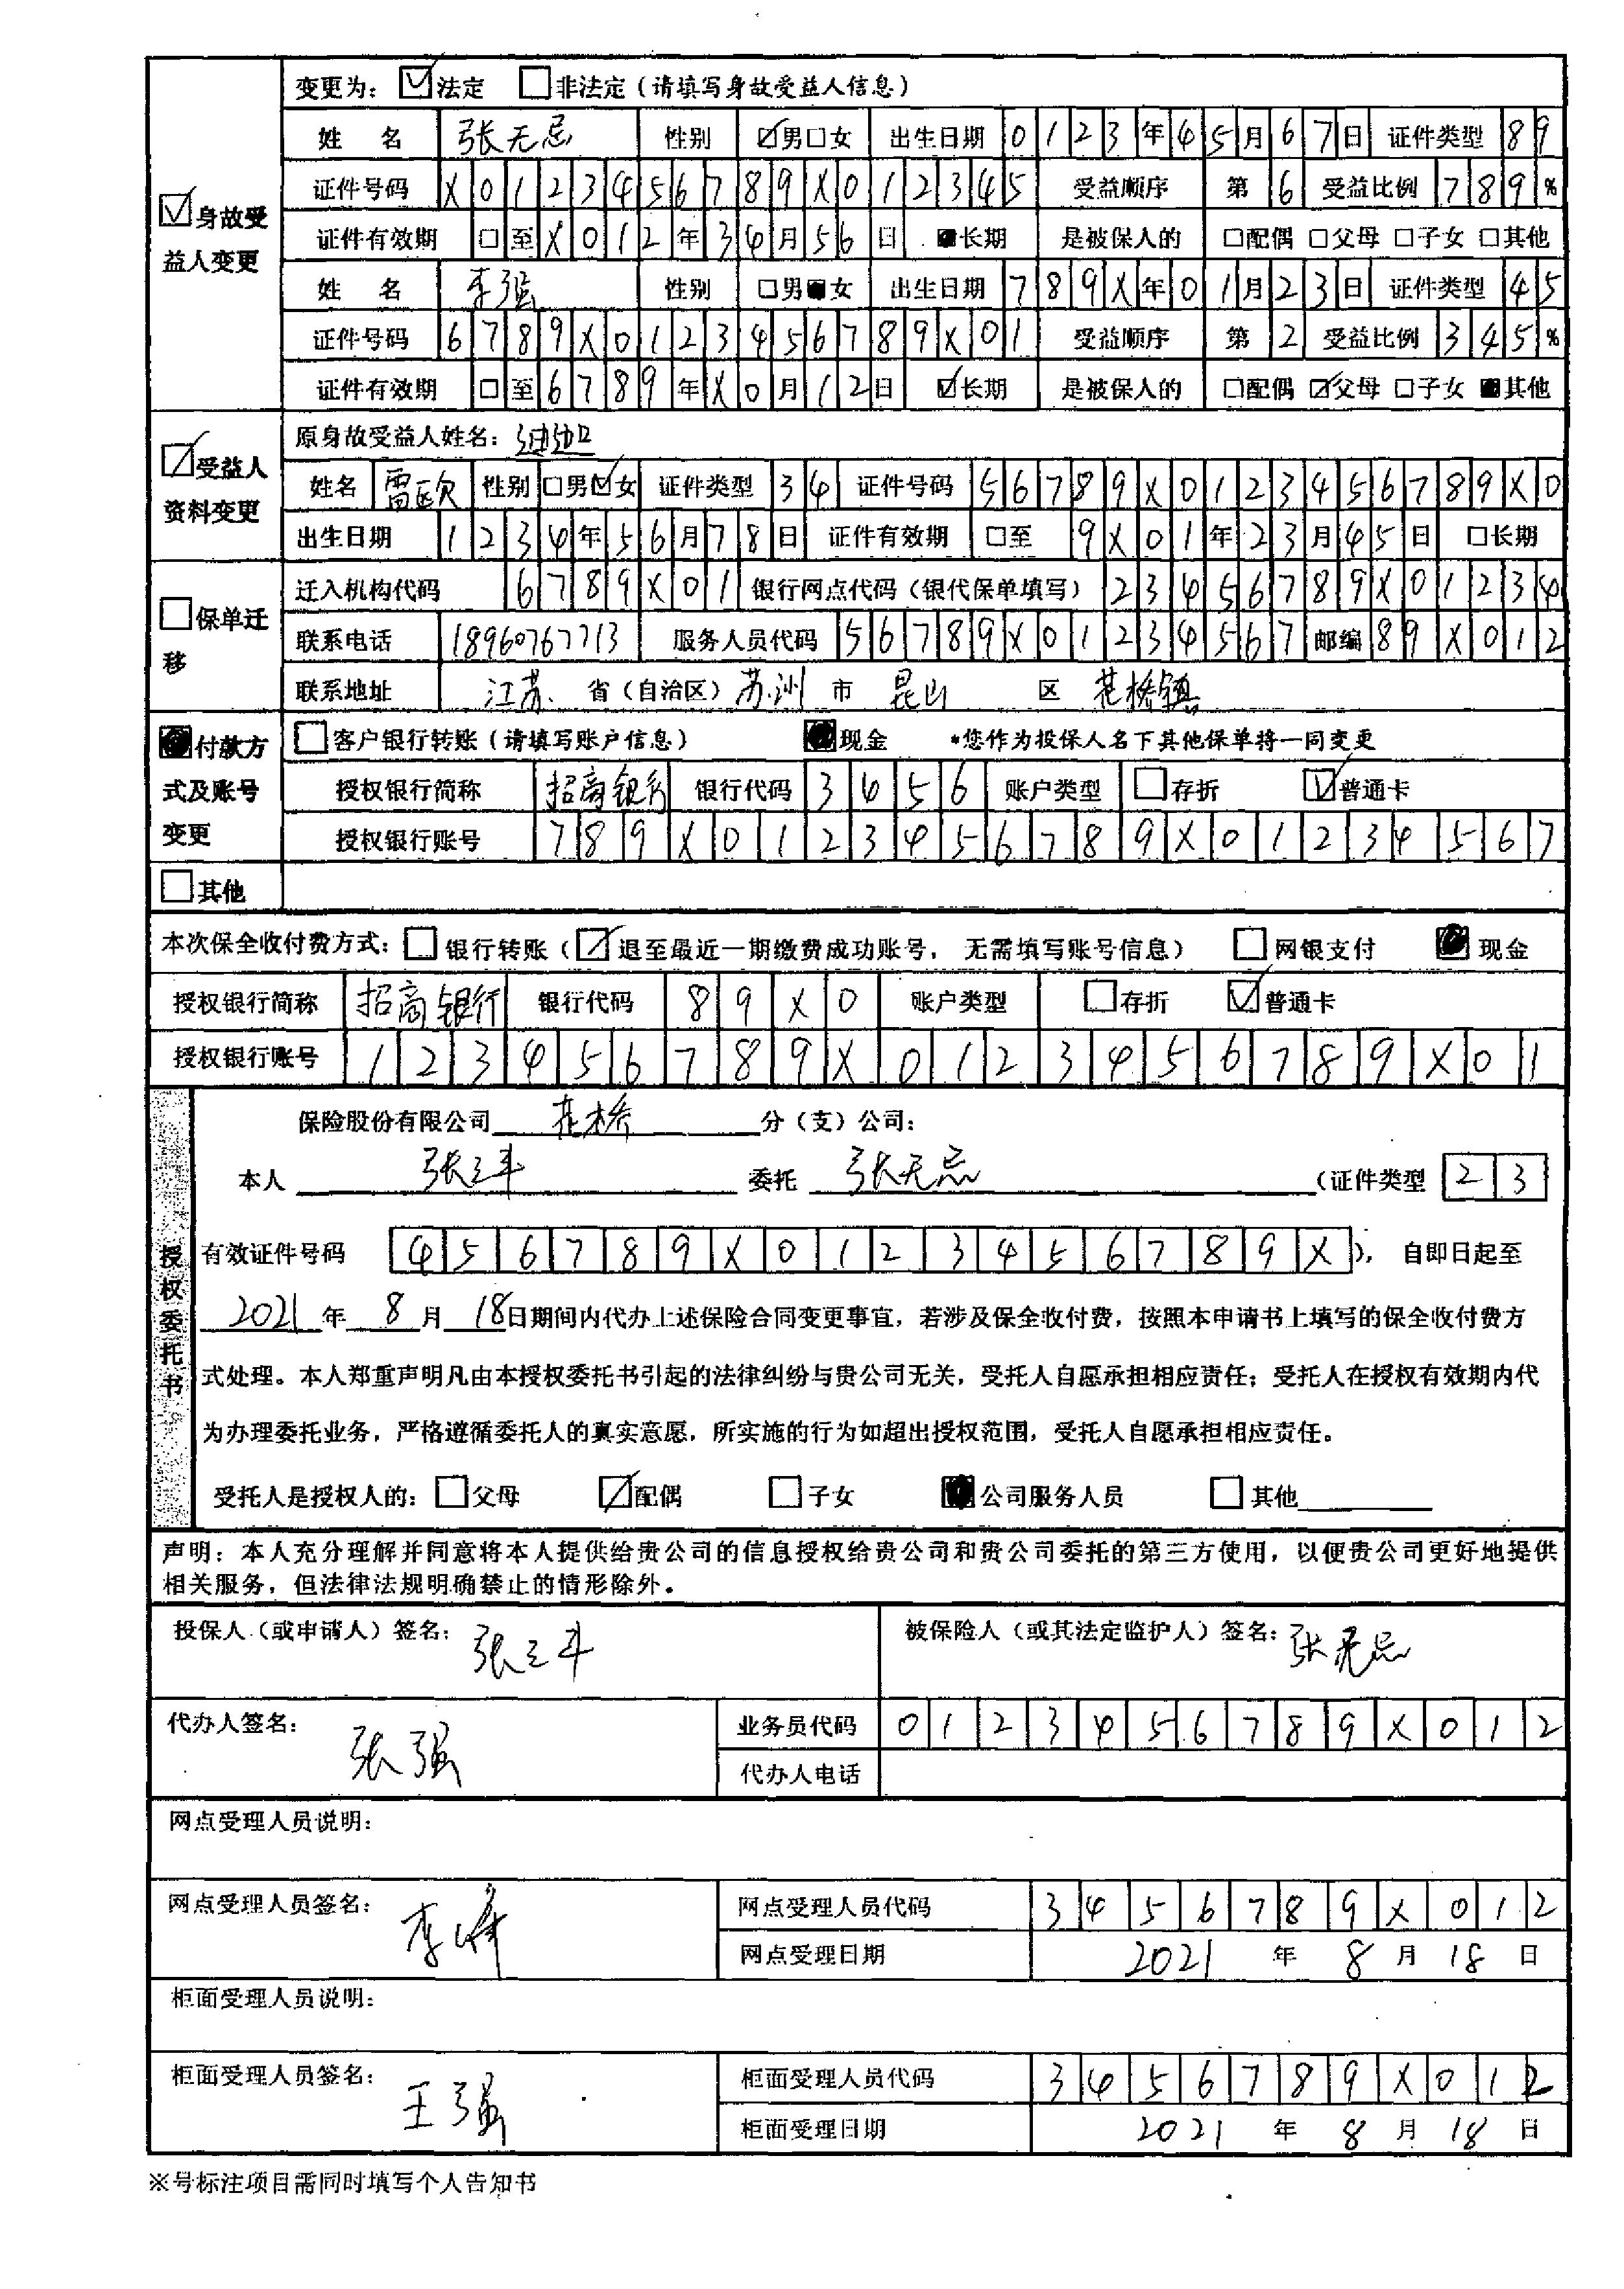 变更为: ☑法定 □非法定（请填写身故受益人信息）
☑身故受益人变更
姓 名 张无忌 性别 ☑男□女 出生日期 0123年45月67日 证件类型 89
证件号码 X0123456789X012345 受益顺序 第6 受益比例 789%
证件有效期 □至X012年34月56日 ■长期 是被保人的 □配偶 □父母 □子女 □其他
姓 名 李强 性别 □男■女 出生日期 789X年01月23日 证件类型 45
证件号码 6789X0123456789X01 受益顺序 第2 受益比例 345%
证件有效期 □至6789年X0月12日 ☑长期 是被保人的 □配偶 ☑父母 □子女 ■其他
☑受益人资料变更
原身故受益人姓名:
姓名 性别 □男☑女 证件类型 34 证件号码 56789X0123456789X0
出生日期 1234年56月78日 证件有效期 □至 9X01年23月45日 □长期
□保单迁移
迁入机构代码 6789X01 银行网点代码（银代保单填写） 23456789X01234
联系电话 18960767713 服务人员代码 56789X01234567 邮编 89X012
联系地址 江苏 省（自治区） 苏州 市 昆山 区 花桥镇
■付款方式及账号变更
□客户银行转账（请填写账户信息） ■现金 *您作为投保人名下其他保单将一同变更
授权银行简称 招商银行 银行代码 3456 账户类型 □存折 ☑普通卡
授权银行账号 789X0123456789X01234567
□其他
本次保全收付费方式: □银行转账（☑退至最近一期缴费成功账号，无需填写账号信息） □网银支付 ■现金
授权银行简称 招商银行 银行代码 89X0 账户类型 □存折 ☑普通卡
授权银行账号 123456789X0123456789X01
授权委托书
保险股份有限公司 花桥 分（支）公司:
本人 张三丰 委托 张无忌 （证件类型 23
有效证件号码 456789X0123456789X ），自即日起至
2021年8月18日期间内代办上述保险合同变更事宜，若涉及保全收付费，按照本申请书上填写的保全收付费方
式处理。本人郑重声明凡由本授权委托书引起的法律纠纷与贵公司无关，受托人自愿承担相应责任；受托人在授权有效期内代
为办理委托业务，严格遵循委托人的真实意愿，所实施的行为如超出授权范围，受托人自愿承担相应责任。
受托人是授权人的: □父母 ☑配偶 □子女 ■公司服务人员 □其他
声明：本人充分理解并同意将本人提供给贵公司的信息授权给贵公司和贵公司委托的第三方使用，以便贵公司更好地提供
相关服务，但法律法规明确禁止的情形除外。
投保人（或申请人）签名: 张三丰 被保险人（或其法定监护人）签名: 张无忌
代办人签名: 张强 业务员代码 0123456789X012
代办人电话
网点受理人员说明:
网点受理人员签名: 李峰 网点受理人员代码 3456789X012
网点受理日期 2021 年 8 月 18 日
柜面受理人员说明:
柜面受理人员签名: 王强 柜面受理人员代码 3456789X012
柜面受理日期 2021 年 8 月 18 日
※号标注项目需同时填写个人告知书